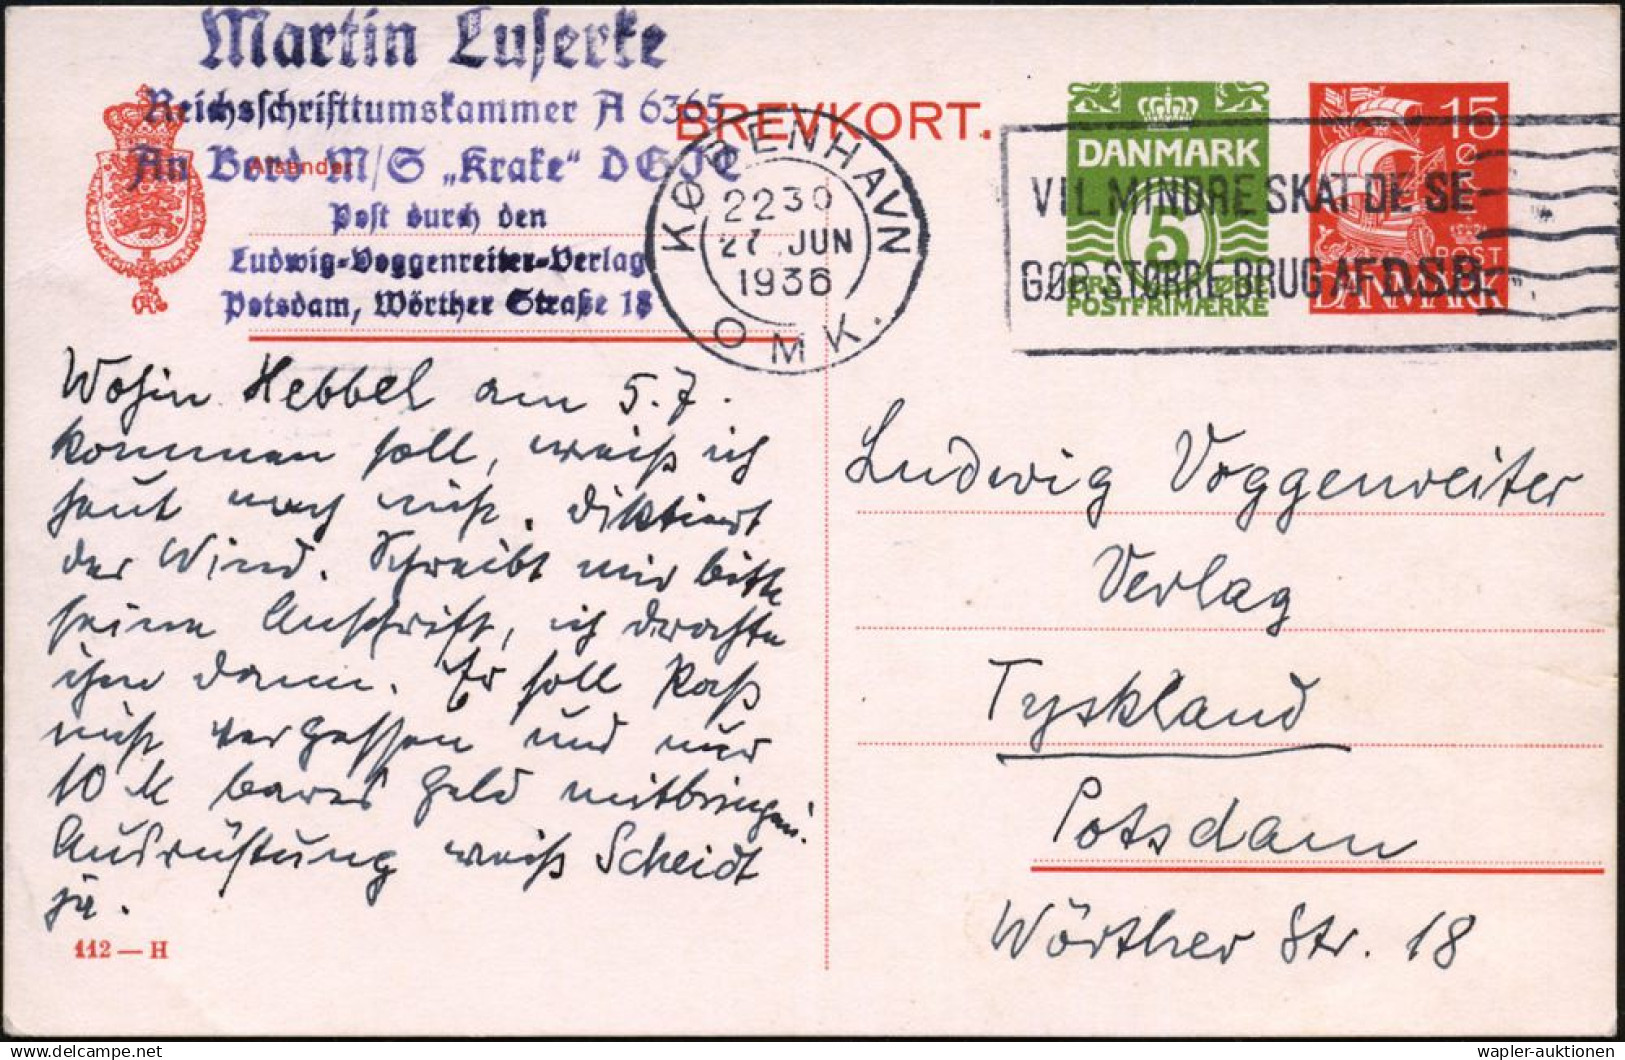 Martin Luserke
Reichsschrifttumskammer A 6365
An Bord M/S „Krake“ DGJC
Post durch den
Ludwig-Voggenreiter-Verlag
Potsdam, Wörther Straße 18
Afsender
BREVKORT.
KØBENHAVN
2230
27 JUN
1936
OMK.
DANMARK
5
POSTFRIMÆRKE
15
ØRE
POST
DANMARK
VIL MINDRE SKAT DE SE
GØR STØRRE BRUG AF D.S.B.
Wohin Hebbel am 5.7.
kommen soll, weiß ich
heut noch nicht. Diktiert
der Wind. Schreibt mir bitte
seine Anschrift, ich drahte
ihm dann. Er soll Paß
nicht vergessen und nur
10 M bares Geld mitbringen!
Ausrüstung weiß Scheidt
ja.
112 — H
Ludwig Voggenreiter
Verlag
Tyskland
Potsdam
Wörther Str. 18
wapler-auktionen
delcampe.net